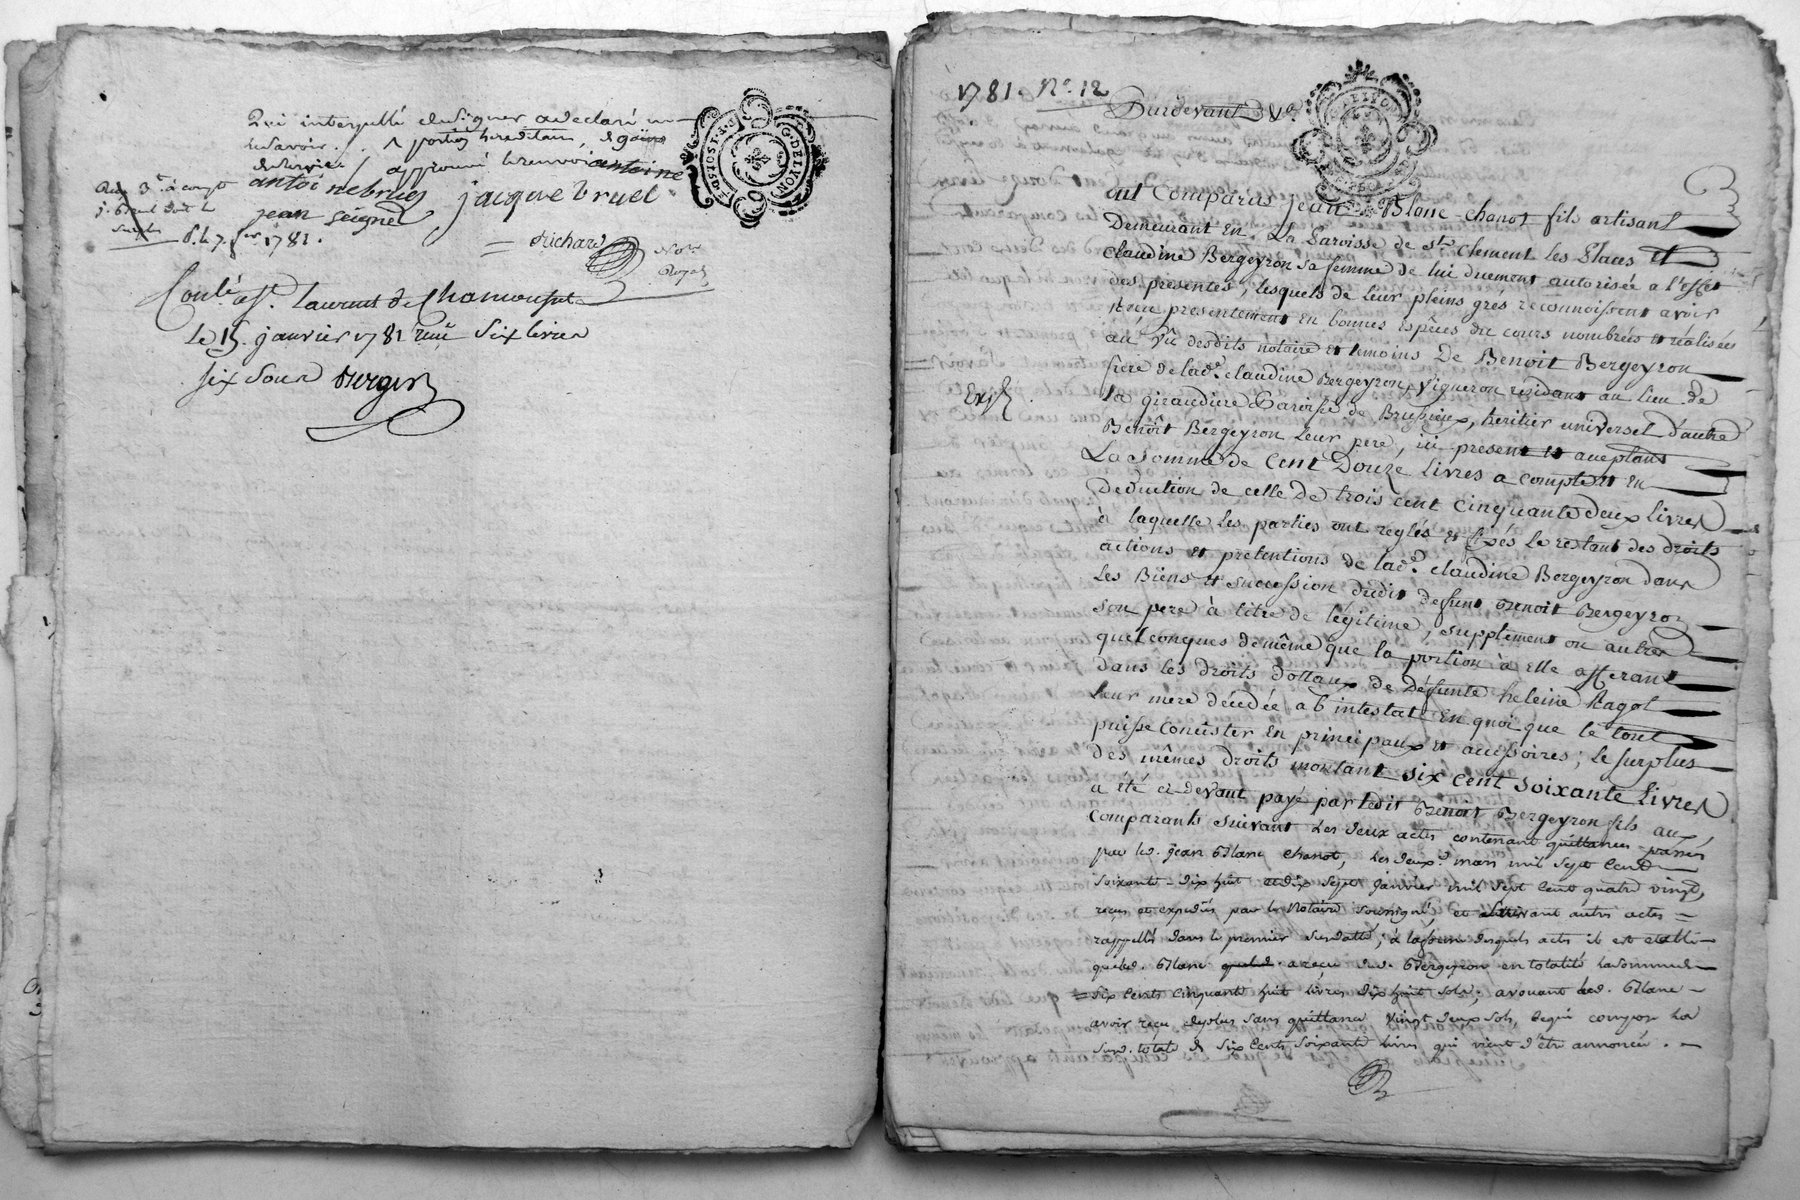 Qui interpellé de signer a declaré ne
le savoir. portion hereditaire,
approuvé le renvoi antoine
antoine bruel jacque bruel
jean seigne
le 7. 1781.
Richard
Not.re
Royal
Conlé à St. Laurent de Chamousset
Le 15. janvier 1781 reçu Six livres
six sous
G. DE LYON
1781. N.o 12
Pardevant
ont Comparus jean Blanc-chanot fils artisant
Demeurant En La Paroisse de St. Clement les Places Et
Claudine Bergeyron sa femme de lui duement autorisée a l'effet
des présentes, lesquels de leur pleins grés reconnoissent avoir
reçu présentement en bonnes espêces du cours nombrées et réalisées
au Vû desdits notaire et temoins De Benoit Bergeyron
frere de lad.e Claudine Bergeyron, Vigneron résidant au lieu de
la giraudiere Paroisse de Brussieux, heritier universel d'autre
Benoît Bergeyron leur pere, ici present et acceptant
La somme de Cent Douze Livres a compte et En
Deduction de celle de trois cent cinquante deux livres
à laquelle les parties ont reglés et fixés le restant des droits
actions et pretentions de lad.e Claudine Bergeyron dans
les Biens et succession dudit deffunt Benoit Bergeyron
son pere à titre de légitime, supplément ou autres
quelconques de même que la portion à elle afferant
dans les droits dottaux de Défunte heleine Ragot
leur mere décédée ab intestat En quoi que le tout
puisse Concister en principaux et accessoires; le surplus
des mêmes droits montant six cent soixante livres
a été ci devant payé par ledit Benoit Bergeyron fils aux
Comparants suivant les deux actes contenant quittances passés
par led. jean Blanc Chanot, les deux mars mil sept Cent
soixante-dix huit et dix sept janvier mil sept Cent quatre vingt,
reçus et expediés par le Notaire soussigné, et suivant autres actes
rappellés dans le premier susdatté; à la forme desquels acts il est etabli
que led. Blanc a reçu dud. Bergeyron en totalité la somme de
six Cents Cinquante huit livres dix huit sols; avouant led. Blanc
avoir reçu depuis sans quittance vingt deux sols, ce qui compose la
susd. totale de six Cents soixante livres qui vient d'être annoncée.